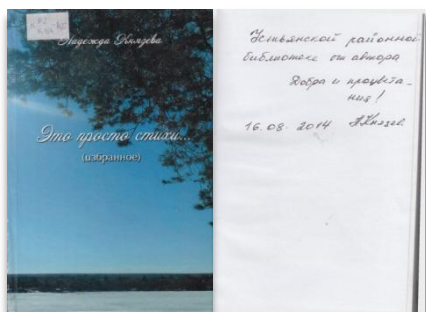 Надежда Князева
Это просто стихи...
(избранное)
Устьянской районной
библиотеке от автора
Добра и процвета-
ния!
16.08.2014 НКнязев